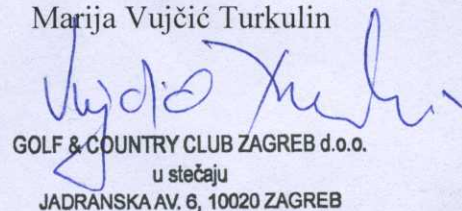 Marija Vujčić Turkulin
Vujčić Turkulin
GOLF & COUNTRY CLUB ZAGREB d.o.o.
u stečaju
JADRANSKA AV. 6, 10020 ZAGREB